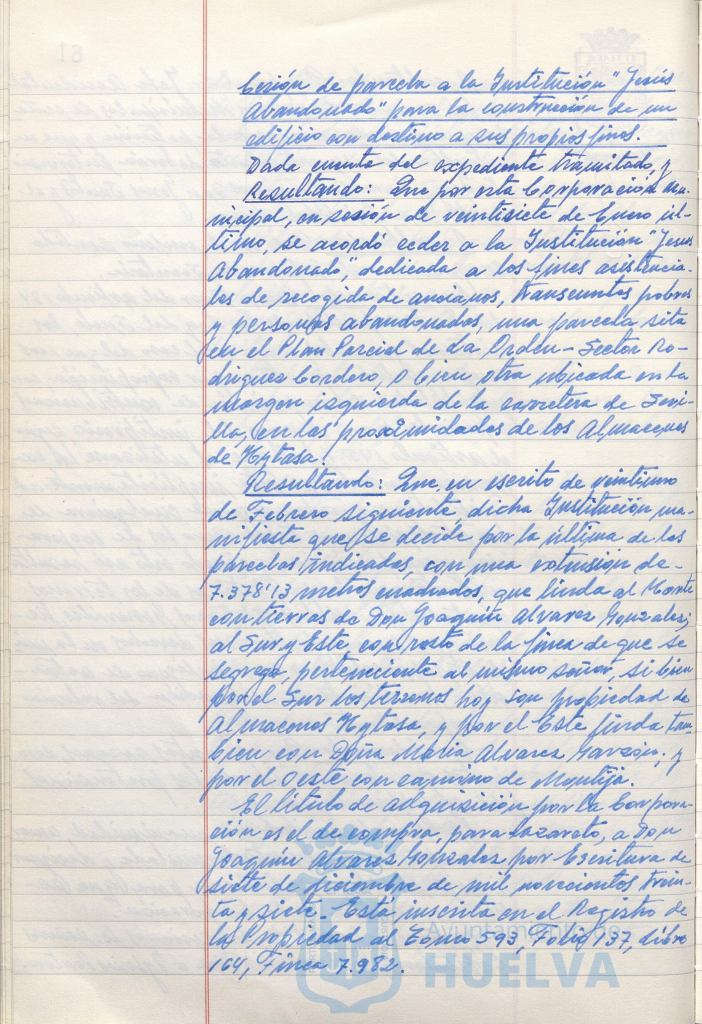 Cesión de parcela a la Institución "Jesús
Abandonado" para la construcción de un
edificio con destino a sus propios fines.
Dada cuenta del expediente tramitado, y
Resultando: Que por esta Corporación mu-
nicipal, en sesión de veintisiete de Enero úl-
timo, se acordó ceder a la Institución "Jesus
Abandonado", dedicada a los fines asistencia-
les de recogida de ancianos, transeuntes pobres
y personas abandonadas, una parcela sita
en el Plan Parcial de La Orden - Sector Ro-
driguez Cordero, o bien otra ubicada en la
margen izquierda de la carretera de Sevi-
lla, en las proximidades de los Almacenes
de Hytasa.
Resultando: Que, en escrito de veintiuno
de Febrero siguiente, dicha Institución ma-
nifiesta que se decide por la última de las
parcelas indicadas, con una extensión de
7.378'13 metros cuadrados, que linda al Norte
con tierras de Don Joaquín Alvarez Gonzalez;
al Sur y Este, con resto de la finca de que se
segrega, perteneciente al mismo señor, si bien
por el Sur los terrenos hoy son propiedad de
Almacenes Hytasa, y por el Este linda tam-
bien con Doña Maria Alvarez Garzón; y
por el Oeste con camino de Montija.
El título de adquisición por la Corpora-
ción es el de compra, para lazareto, a Don
Joaquín Alvarez Gonzalez por Escritura de
siete de diciembre de mil novecientos trein-
ta y siete. Está inscrita en el Registro de
la Propiedad al Tomo 593, Folio 137, libro
164, Finca 7.982.
Ayuntamiento de
HUELVA